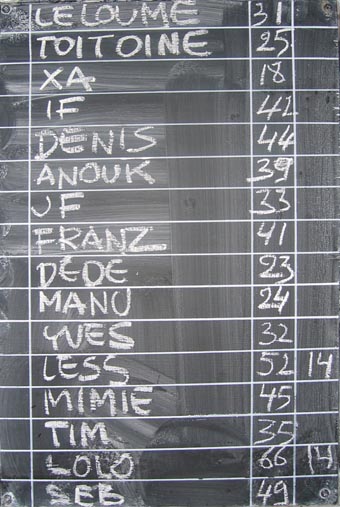 LELOUME 31
TOITOINE 25
XA 18
IF 42
DENIS 44
ANOUK 39
JF 33
FRANZ 41
DÉDÉ 23
MANU 24
YVES 32
LESS 52 14
MIMIE 45
TIM 35
LOLO 66 14
SEB 49